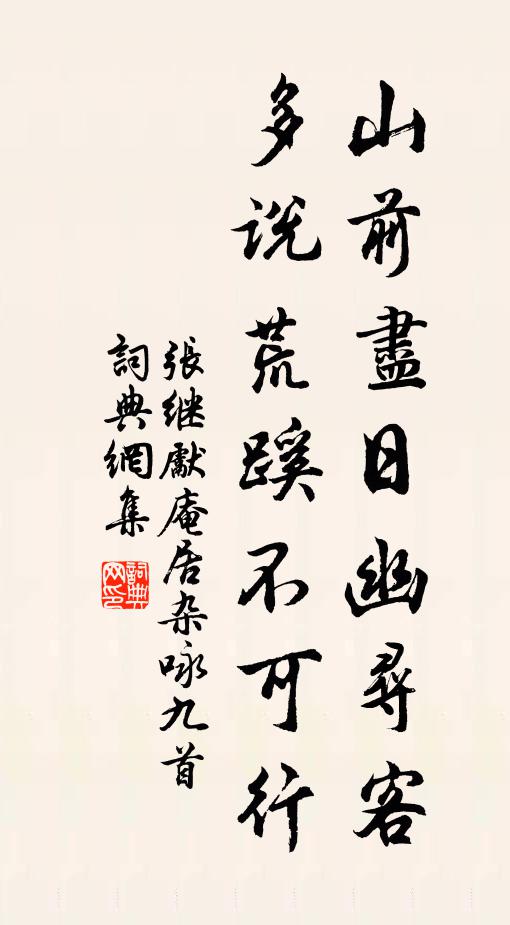 山前盡日幽尋客
多说荒蹊不可行
張继獻庵居杂咏九首
詞典網集
詞典
网印